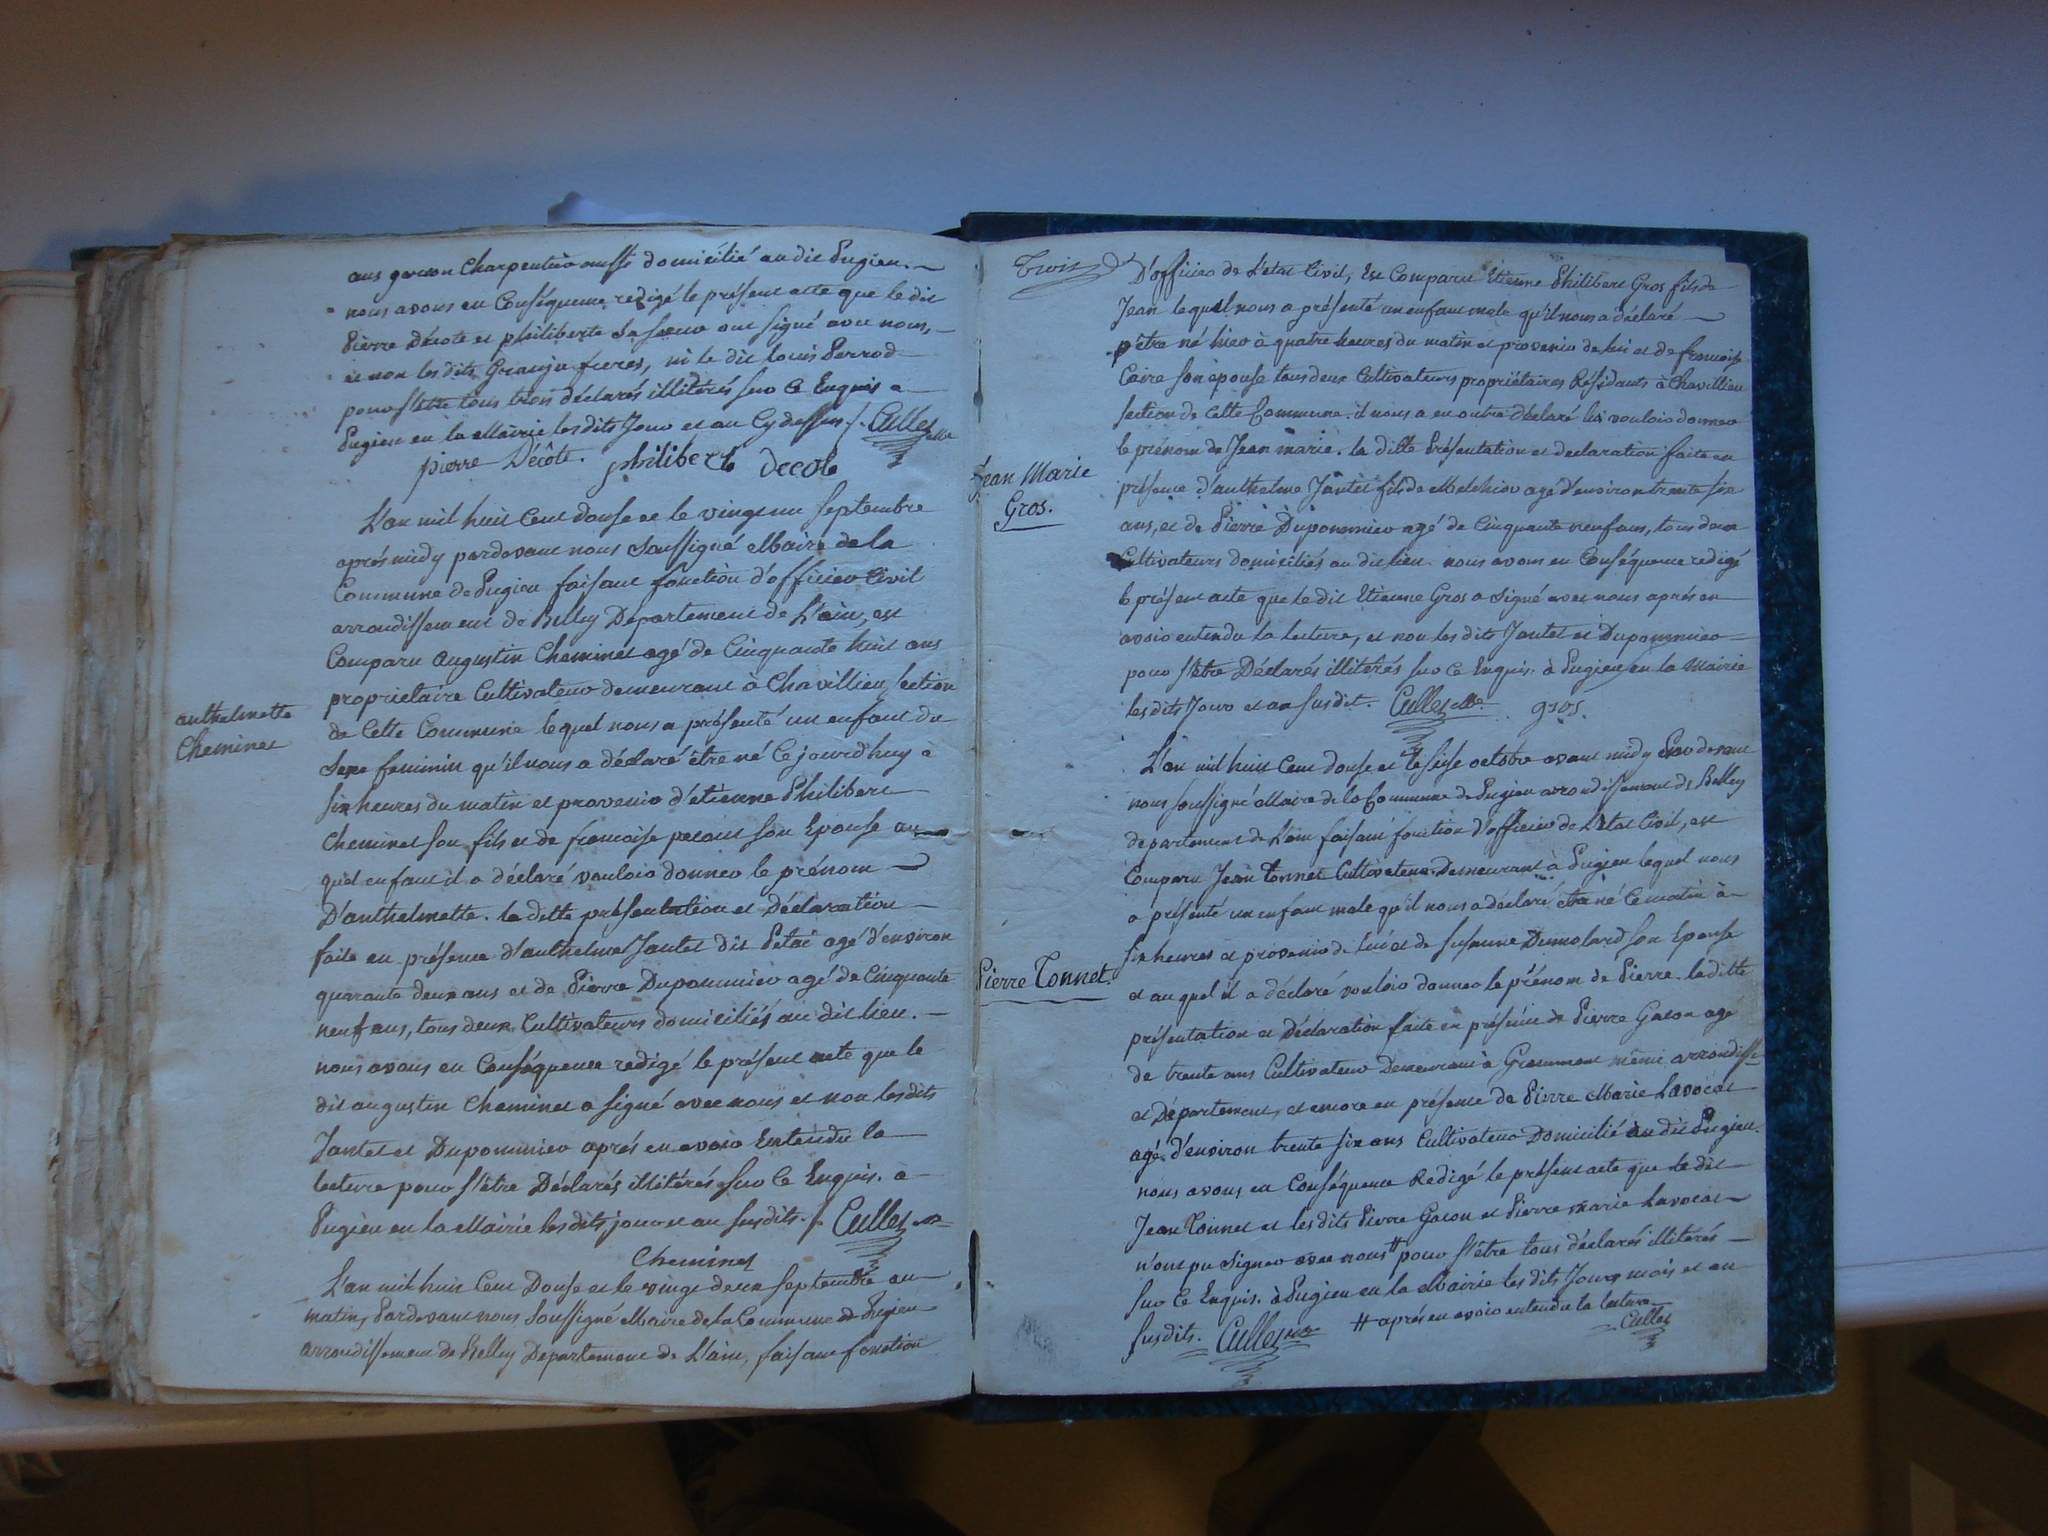 ans garcon Charpentier aussi domicilié au dit Pugieu. —
nous avons en Conséquence redigé le présent acte que le dit
Pierre Décote et philiberte sa soeur ont signé avec nous, —
et non les dits Granju freres, ni le dit Louis Perrod
pour s'être tous trois déclarés illitérés sur ce Enquis a
Pugieu en la Mairie les dits Jour et an Cy dessus ./. Cullet mre
pierre Décôte. philiberte decote
L'an mil huit Cent douse et le vingt un Septembre
aprés midy pardevant nous Soussigné Maire de la
Commune de Pugieu faisant fonction d'officier Civil
arrondissement de Belley Departement de L'ain, est
Comparu augustin Cheminet agé de Cinquante huit ans
proprietaire Cultivateur demeurant à Chavillieu, section
anthelmette
Cheminet
de Cette Commune lequel nous a présenté un enfant du
Sexe feminin qu'il nous a déclaré être né Ce jourd'huy à
six heures du matin et provenir d'etienne Philibert
Cheminet son fils et de francoise son Epouse au
quel enfant il a déclaré vouloir donner le prénom —
D'anthelmette. la ditte présentation et Déclaration —
faite en présence d'anthelme Jantet dit agé d'environ
quarante deux ans et de Pierre Duponmier agé de Cinquante
neuf ans, tous deux Cultivateurs domiciliés au dit lieu. —
nous avons en Conséquence redigé le présent acte que le
dit augustin Cheminet a signé avec nous et non les dits
Jantet et Duponmier aprés en avoir Entendu la
lecture pour s'être Déclarés illitérés sur Ce Enquis. a
Pugieu en la Mairie les dits jour et an susdits ./. Cullet mre
Cheminet
L'an mil huit Cent Douse et le vingt deux septembre au
matin, Pardevant nous Soussigné Maire de la Commune de Pugieu
arrondissement de Belley Departement de L'ain, faisant fonction
Trois
D'officier de L'etat Civil, Est Comparu Etienne Philibert Gros fils de
Jean lequel nous a présenté un enfant male qu'il nous a déclaré —
être né hier à quatre heures du matin et provenir de lui et de francoise
Caire son épouse tous deux Cultivateurs propriétaires Résidants à Chavillieu
section de Cette Commune. il nous a en outre déclaré lui vouloir donner
le prénom de Jean marie. la ditte Présentation et declaration faite en
Jean Marie
Gros.
présence d'anthelme Jantet fils de Melchior agé d'environ trente six
ans, et de Pierre Duponmier agé de Cinquante neuf ans, tous deux
Cultivateurs domiciliés au dit lieu. nous avons en Conséquence redigé
le présent acte que le dit Etienne Gros a signé avec nous aprés en
avoir entendu la lecture, et non les dits Jantet et Duponmier —
pour s'être Déclarés illitérés sur Ce Enquis. à Pugieu en la Mairie
les dits Jour et an susdit. Cullet mre. gros.
L'an mil huit Cent douse et le seise octobre avant midy Pardevant
nous soussigné Maire de la Commune de Pugieu arrondissement de Belley
departement de L'ain faisant fonction d'officier de L'Etat Civil, est
Comparu Jean Tonnet Cultivateur Demeurant à Pugieu lequel nous
a présenté un enfant male qu'il nous a déclaré être né Ce matin à —
six heures et provenir de lui et de susanne Dumolard son Epouse
Pierre Tonnet.
et au quel il a déclaré vouloir donner le prénom de Pierre. la ditte
présentation et Déclaration faite en présence de Pierre Gacon agé
de trente ans Cultivateur Demeurant à Grammont même arrondisse
et Département, et encore en présence de Pierre Marie Lavocat
agé d'environ trente six ans Cultivateur Domicilié au dit Pugieu.
nous avons en Conséquence Redigé le présent acte que le dit —
Jean Tonnet et les dits Pierre Gacon et Pierre marie Lavocat —
n'ont pu signer avec nous # pour s'être tous déclarés illitérés —
sur Ce Enquis. à Pugieu en la Mairie les dits Jour, mois et an
susdits. Cullet mre # aprés en avoir entendu la lecture.
Cullet